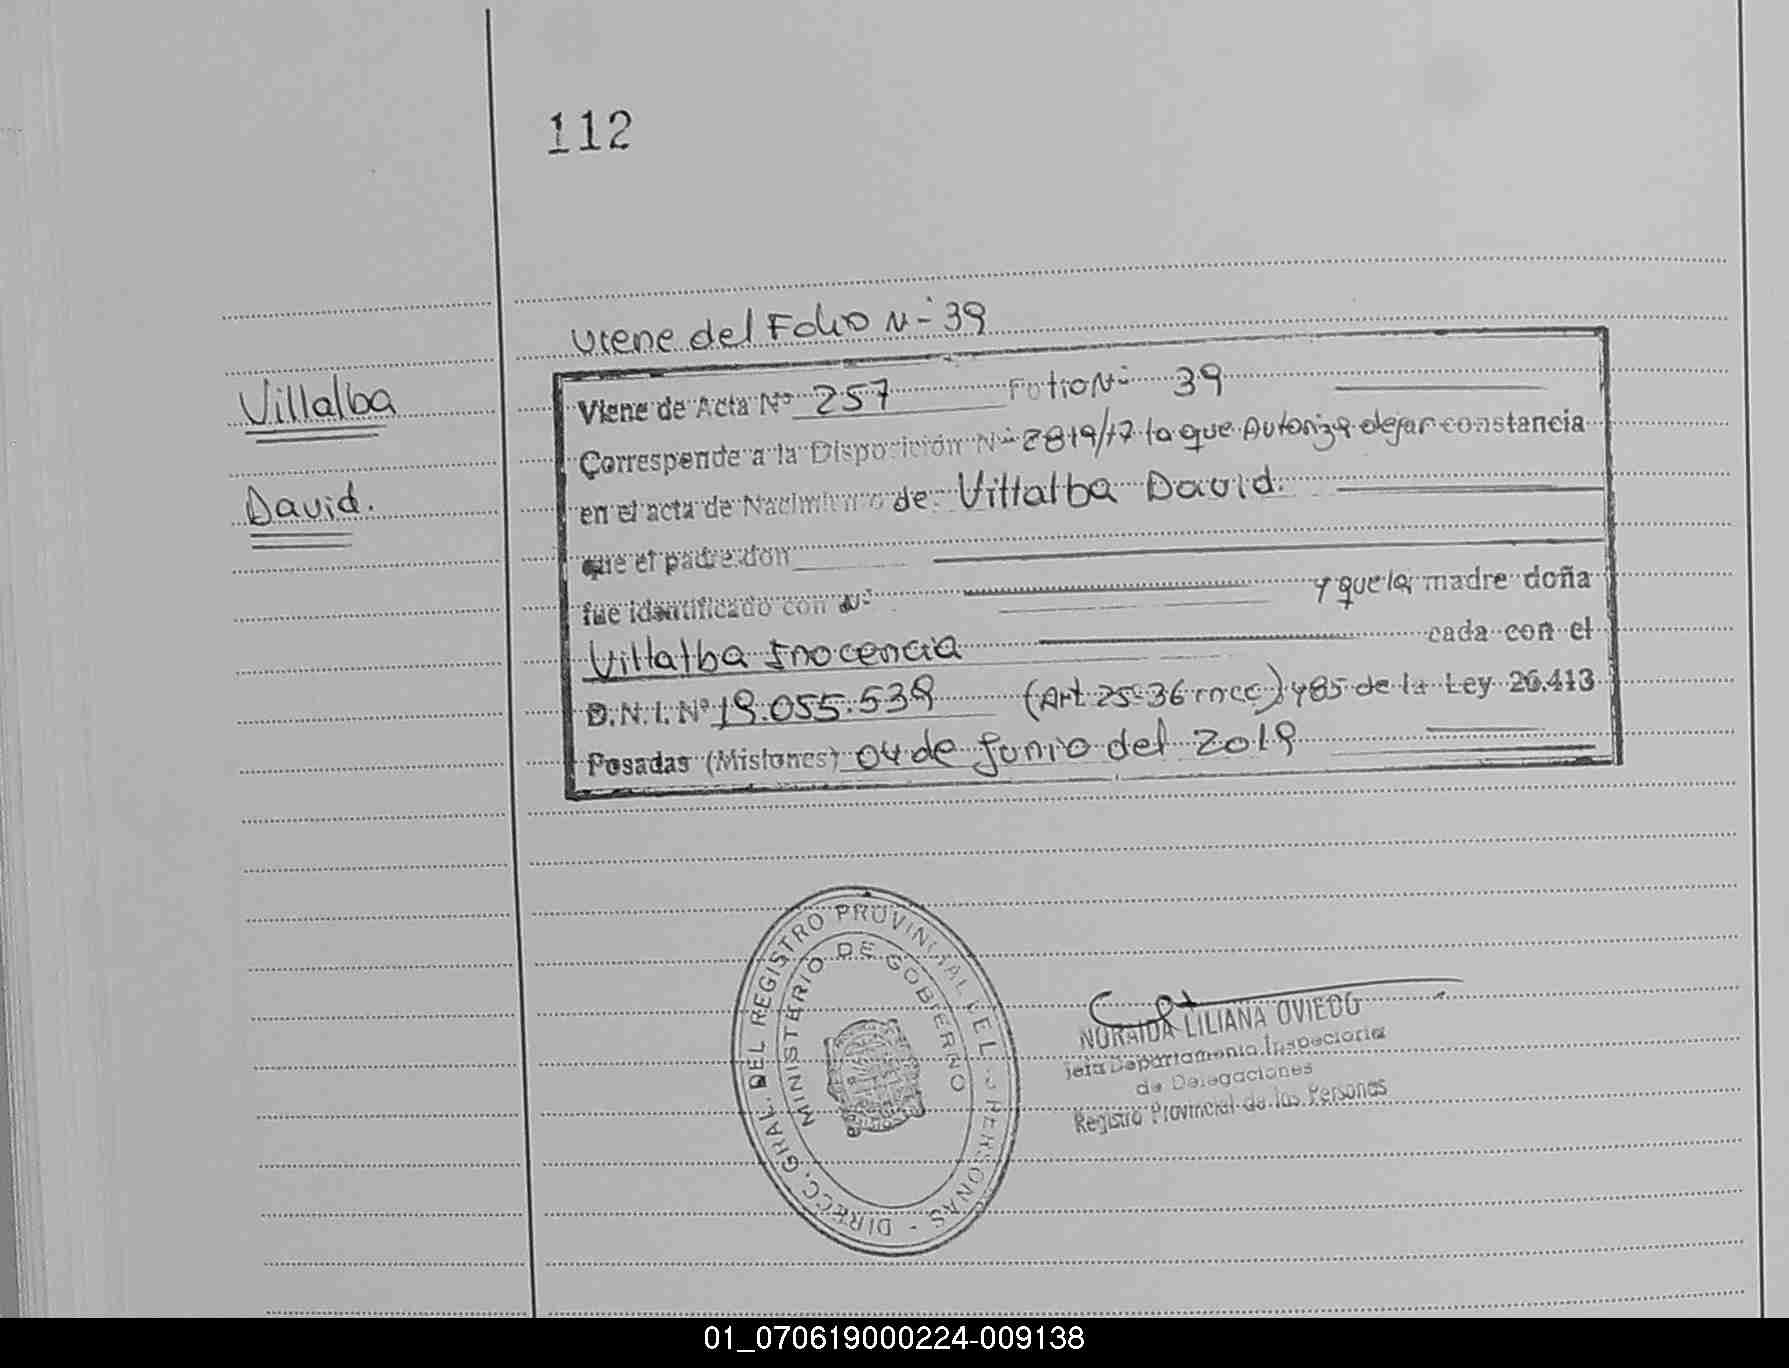 112
Viene del Folio N° 39
Villalba
David.
Viene de Acta N° 257 Folio N° 39
Corresponde a la Disposición N° 2819/17 la que Autoriza dejar constancia
en el acta de Nacimiento de Villalba David.
que el padre don
fue identificado con N° y que la madre doña
Villalba Inocencia cada con el
D.N.I. N° 19.055.539 (Art. 25-36 mcc) y 85 de la Ley 26.413
Posadas (Misiones) 04 de Junio del 2019
DIRECC. GRAL. DEL REGISTRO PROVINCIAL DE L. PERSONAS -
MINISTERIO DE GOBIERNO
NORAIDA LILIANA OVIEDO
Jefa Departamento Inspectoria
de Delegaciones
Registro Provincial de las Personas
01_070619000224-009138